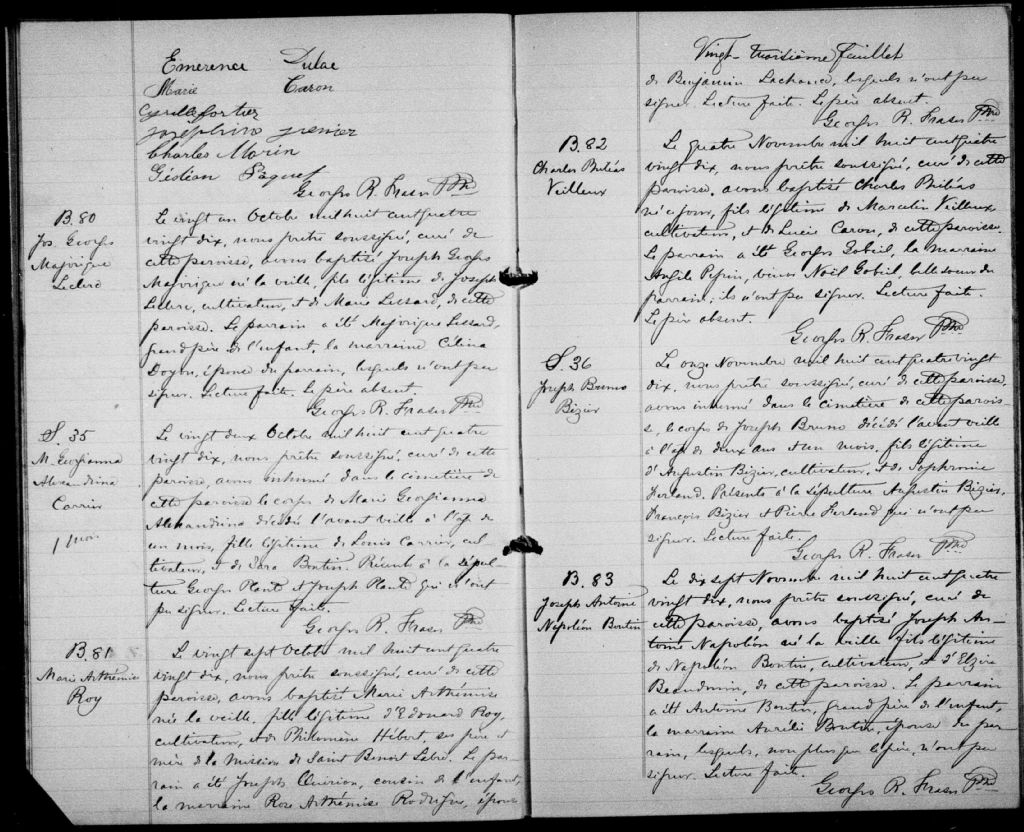 Emerence Dulac
Marie Caron
Cyrille Fortier
Joséphine Grenier
Charles Morin
Gédéon Paquet
Georges R. Fraser Ptre
B. 80
Jos. Georges
Majorique
Leclerc
Le vingt un Octobre mil huit cent quatre
vingt dix, nous prêtre soussigné, curé de
cette paroisse, avons baptisé Joseph Georges
Majorique né la veille, fils légitime de Joseph
Leclerc, cultivateur, et de Marie Lessard, de cette
paroisse. Le parrain a été Majorique Lessard,
grand père de l'enfant, la marraine Célina
Doyon, épouse du parrain, lesquels n'ont pu
signer. Lecture faite. Le père absent
Georges R. Fraser Ptre
S. 35
M. Georgianna
Alexandrina
Carrier
1 mois
Le vingt deux Octobre mil huit cent quatre
vingt dix, nous prêtre soussigné, curé de cette
paroisse, avons inhumé dans le cimetière de
cette paroisse le corps de Marie Georgianna
Alexandrina décédée l'avant veille à l'age de
un mois, fille légitime de Louis Carrier, cul
tivateur, et de Sara Boutin. Présents à la sépul-
ture Georges Plante et Joseph Plante qui n'ont
pu signer. Lecture faite.
Georges R. Fraser Ptre
B. 81
Marie Arthémise
Roy
Le vingt sept Octobre mil huit cent quatre
vingt dix, nous prêtre soussigné, curé de cette
paroisse, avons baptisé Marie Arthémise
née la veille, fille légitime d'Edouard Roy,
cultivateur, et de Philomène Hébert, ses père et
mère de la Mission de Saint Benoit Labre. Le par
rain a été Joseph Quirion, cousin de l'enfant,
la marraine Rose Arthémise Rodrigue, épouse
Vingt-troisième feuillet
de Benjamin Lachance, lesquels n'ont pu
signer. Lecture faite. Le père absent.
Georges R. Fraser Ptre
B. 82
Charles Philéas
Veilleux
Le quatre Novembre mil huit cent quatre
vingt dix, nous prêtre soussigné, curé de cette
paroisse, avons baptisé Charles Philéas
né ce jour, fils légitime de Marcelin Veilleux
cultivateur, et de Lucie Caron, de cette paroisse.
Le parrain a été Georges Gobeil, la marraine
Angèle Pépin, veuve Noël Gobeil, belle soeur du
parrain, ils n'ont pu signer. Lecture faite.
Le père absent.
Georges R. Fraser Ptre
S. 36
Joseph Bruno
Bizier
Le onze Novembre mil huit cent quatre vingt
dix, nous prêtre soussigné, curé de cette paroisse,
avons inhumé dans le cimetière de cette parois-
se, le corps de Joseph Bruno décédé l'avant veille
à l'age de deux ans et un mois, fils légitime
d'Augustin Bizier, cultivateur, et de Sophronie
Ferland. Présents à la sépulture Augustin Bizier,
François Bizier et Pierre Ferland qui n'ont pu
signer. Lecture faite.
Georges R. Fraser Ptre
B. 83
Joseph Antoine
Napoléon Boutin
Le dix sept Novembre mil huit cent quatre
vingt dix, nous prêtre soussigné, curé de
cette paroisse, avons baptisé Joseph An-
toine Napoléon né la veille fils légitime
de Napoléon Boutin, cultivateur, et d'Elzire
Beaudouin, de cette paroisse. Le parrain
a été Antoine Boutin, grand père de l'enfant,
la marraine Aurélie Boutin, épouse du par
rain, lesquels, non plus que le père, n'ont pu
signer. Lecture faite.
Georges R. Fraser Ptre